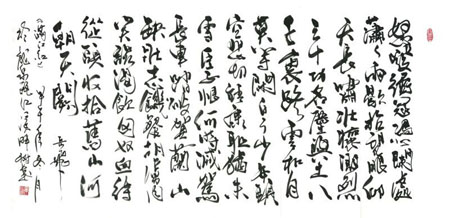 怒髮衝冠憑闌處
瀟瀟雨歇抬望眼仰
天長嘯壯懷激烈
三十功名塵與土八
千里路雲和月
莫等閒白了少年頭
空悲切靖康恥猶未
雪臣子恨何時滅駕
長車踏破賀蘭山
缺壯志飢餐胡虜肉
笑談渴飲匈奴血待
從頭收拾舊山河
朝天闕 岳飛
滿江紅 甲午年 月
龍 江 樹